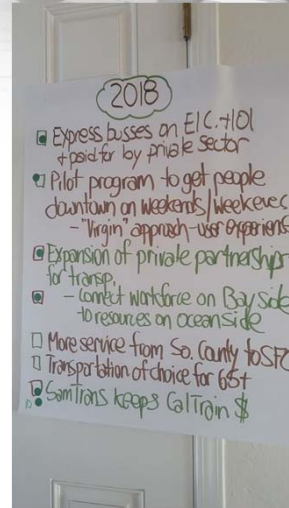 2018
Express busses on E.I.C. + 101
+ paid for by private sector
Pilot program to get people
downtown on weekends/weekeve
- "Virgin" approach - user experien
Expansion of private partnerships
for transp.
- Connect workforce on Bayside
to resources on oceanside
More service from So. County to SF
Transportation of choice for 65+
SamTrans keeps CalTrain $